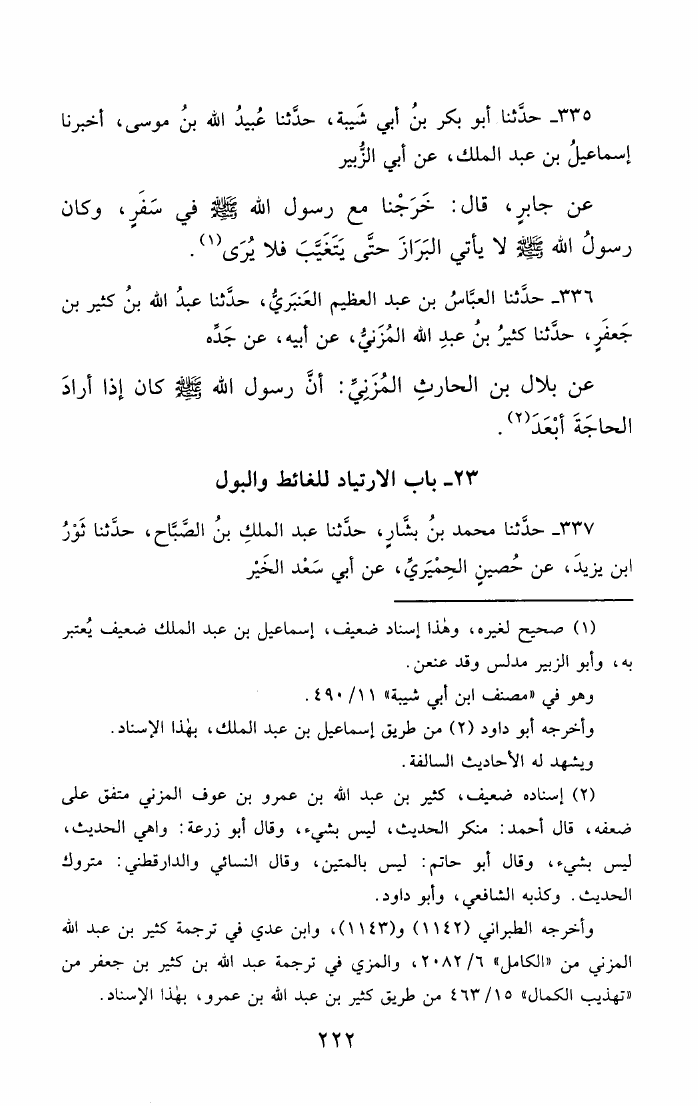 ٣٣٥ـ حدَّثنا أبو بكر بنُ أبي شَيبة، حدَّثنا عُبيدُ الله بنُ موسى، أخبرنا
إسماعيلُ بن عبد الملك، عن أبي الزُّبير
عن جابرٍ، قال: خَرَجْنا مع رسول الله ﷺ في سَفَرٍ، وكان
رسولُ الله ﷺ لا يأتي البَرَازَ حتَّى يَتَغَيَّبَ فلا يُرَى(١).
٣٣٦ـ حدَّثنا العبَّاسُ بن عبد العظيم العَنبَريُّ، حدَّثنا عبدُ الله بنُ كثير بن
جَعفَرٍ، حدَّثنا كثيرُ بنُ عبدِ الله المُزَنيُّ، عن أبيه، عن جَدِّه
عن بلال بن الحارثِ المُزَنِيِّ: أنَّ رسول الله ﷺ كان إذا أرادَ
الحاجَةَ أبْعَدَ(٢).
٢٣ـ باب الارتياد للغائط والبول
٣٣٧ـ حدَّثنا محمد بنُ بشَّارٍ، حدَّثنا عبد الملكِ بنُ الصَّبَّاح، حدَّثنا ثَوْرُ
ابن يزيدَ، عن حُصينٍ الحِمْيَريِّ، عن أبي سَعْد الخَيْر
(١) صحيح لغيره، وهٰذا إسناد ضعيف، إسماعيل بن عبد الملك ضعيف يُعتبر
به، وأبو الزبير مدلس وقد عنعن.
وهو في «مصنف ابن أبي شيبة» ١١/ ٤٩٠.
وأخرجه أبو داود (٢) من طريق إسماعيل بن عبد الملك، بهٰذا الإسناد.
ويشهد له الأحاديث السالفة.
(٢) إسناده ضعيف، كثير بن عبد الله بن عمرو بن عوف المزني متفق على
ضعفه، قال أحمد: منكر الحديث، ليس بشيء، وقال أبو زرعة: واهي الحديث،
ليس بشيء، وقال أبو حاتم: ليس بالمتين، وقال النسائي والدارقطني: متروك
الحديث. وكذبه الشافعي، وأبو داود.
وأخرجه الطبراني (١١٤٢) و(١١٤٣)، وابن عدي في ترجمة كثير بن عبد الله
المزني من «الكامل» ٦/ ٢٠٨٢، والمزي في ترجمة عبد الله بن كثير بن جعفر من
«تهذيب الكمال» ١٥/ ٤٦٣ من طريق كثير بن عبد الله بن عمرو، بهٰذا الإسناد.
٢٢٢